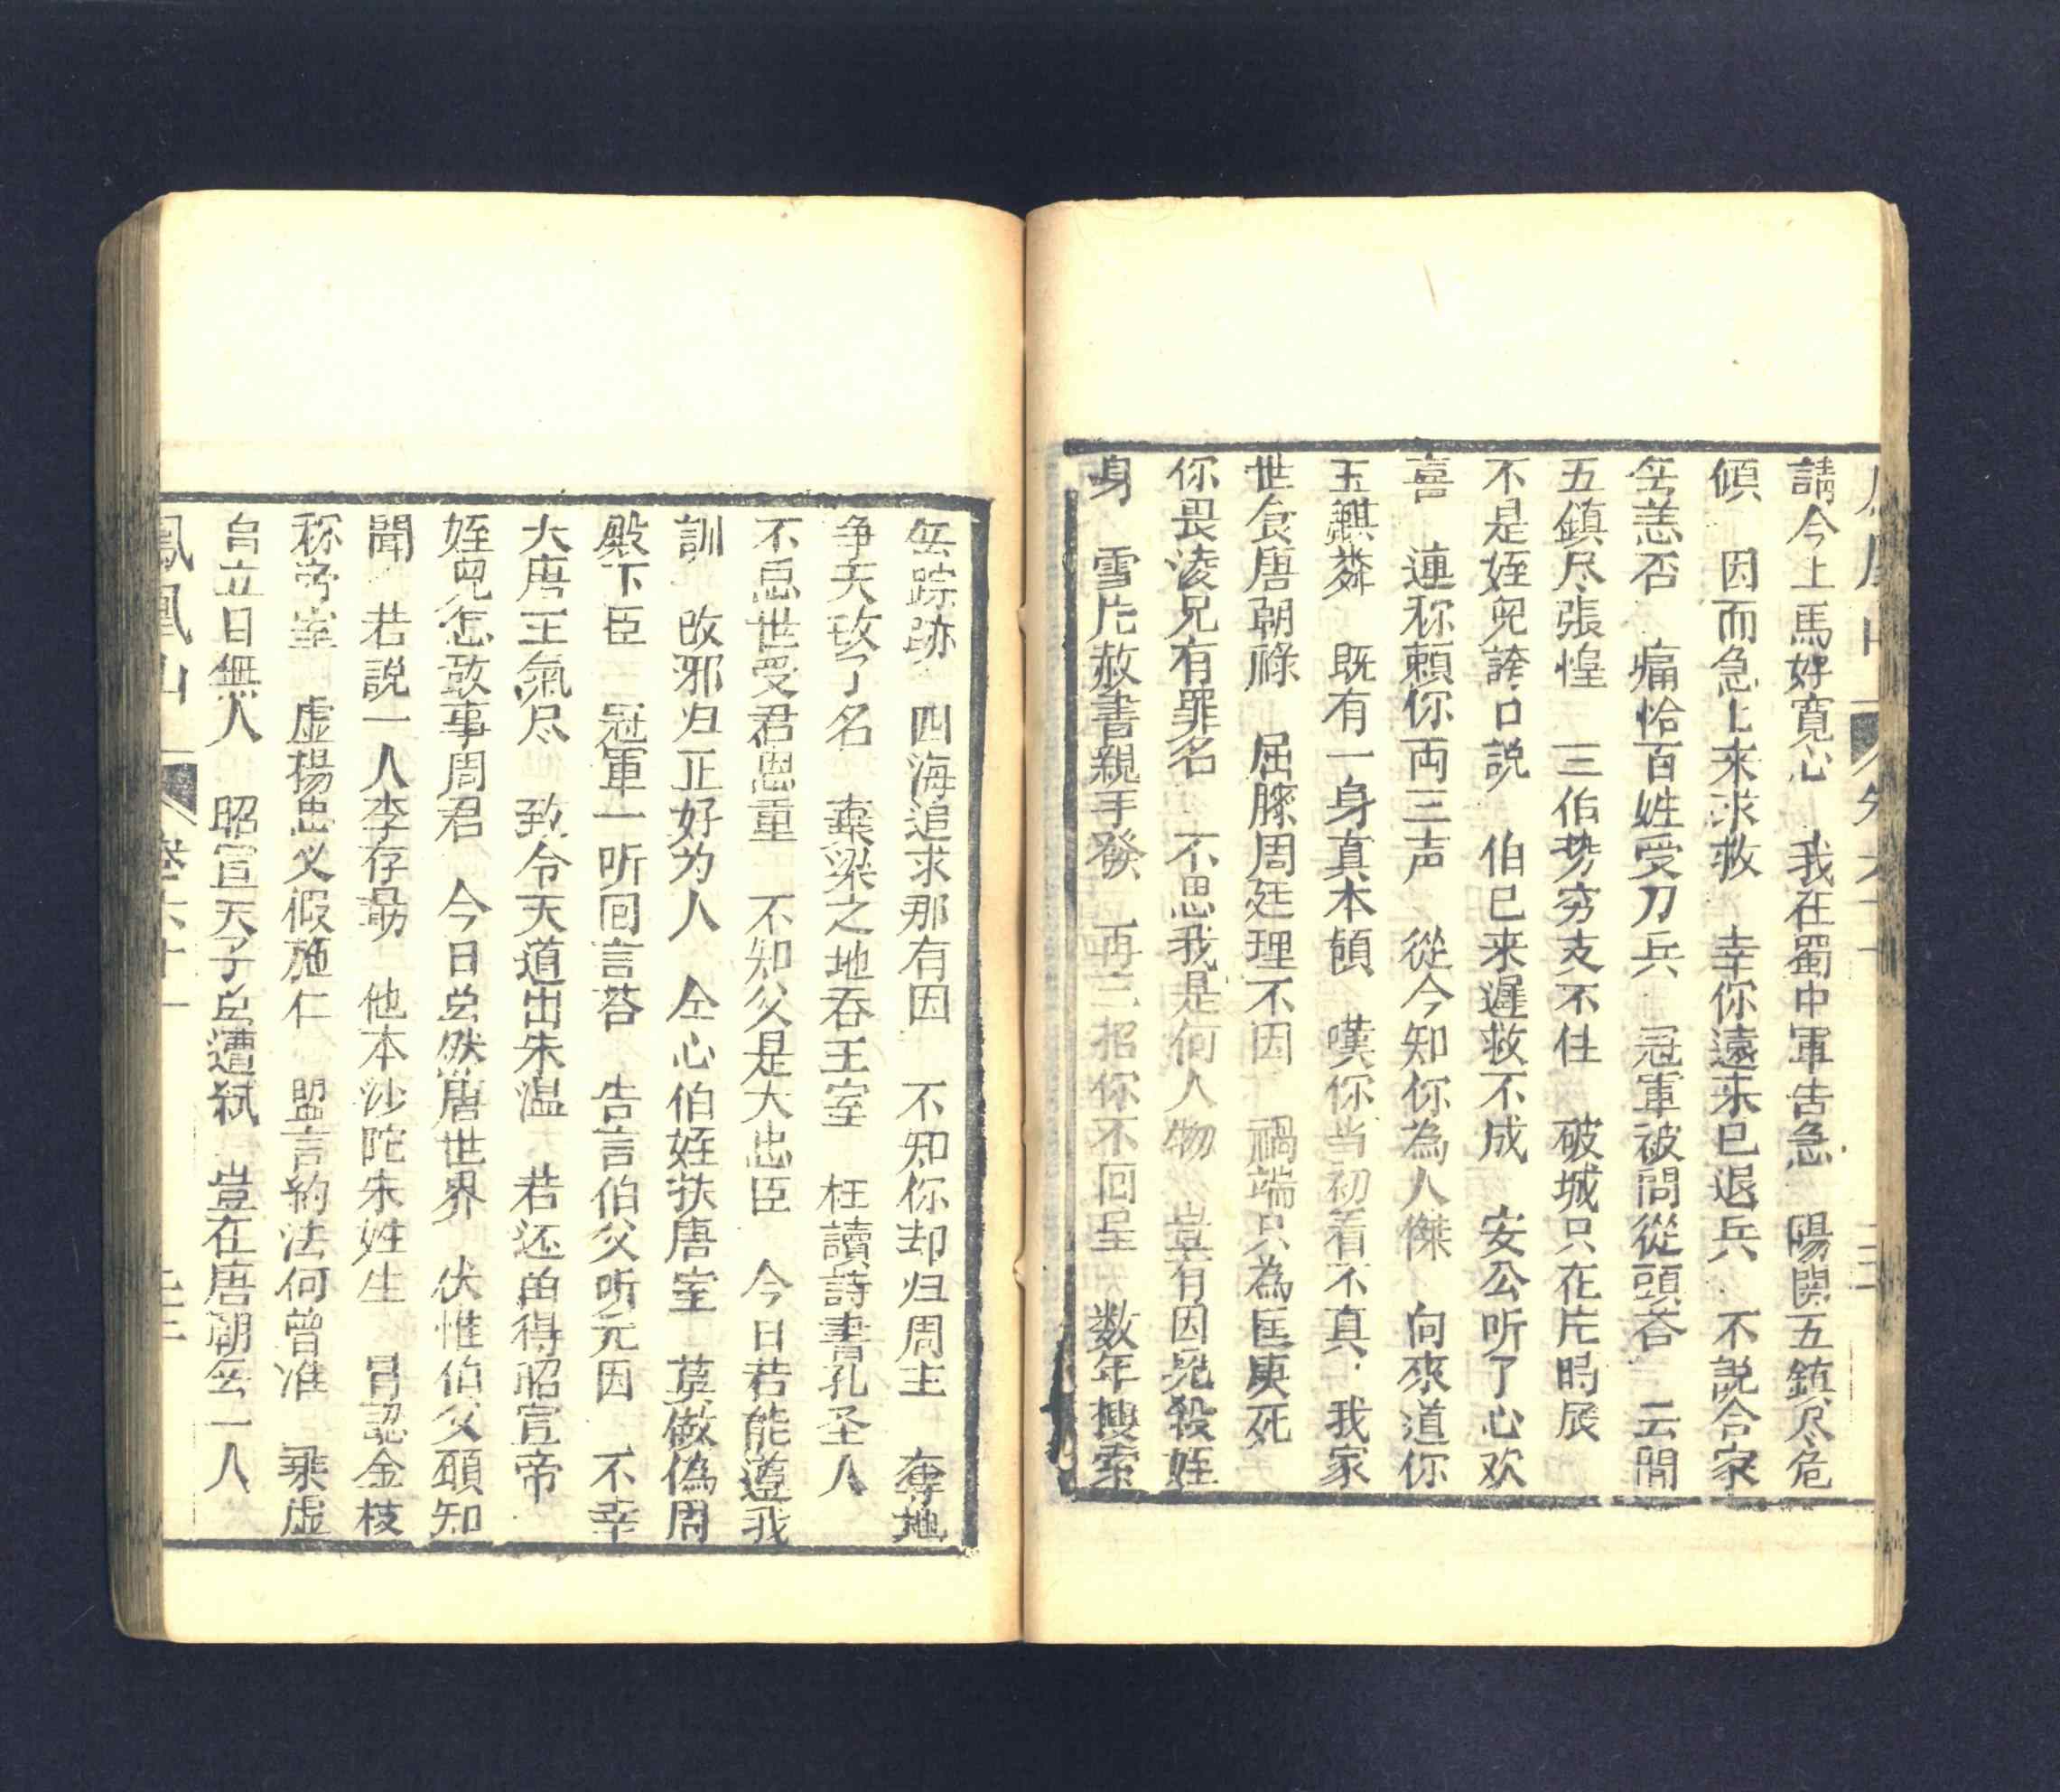 請今上馬好寬心　我在蜀中軍告急　陽関五鎮尽危
傾　因而急上来求救　幸你遠来已退兵　不説合家
無恙否　痛恰百姓受刀兵　冠軍被問從頭荅　云間
五鎮尽張惶　三伯势穷支不住　破城只在片時辰
不是姪兒誇口説　伯已来遲救不成　安公听了心欢
喜　連称頼你両三声　從今知你為人傑　向來道你
玉麒麟　既有一身真本領　嘆你当初看不真　我家
世食唐朝祿　屈膝周廷理不因　禍端只為匡庚死
你畏淩兄有罪名　不思我是何人物　豈有因兄殺姪
身　雪片赦書親手發　再三招你不回呈　数年搜索
無踪跡　四海追求那有因　不知你却归周主　奪地
争天改了名　棄梁之地吞王室　枉讀詩書孔圣人
不思世受君恩重　不知父是大忠臣　今日若能遵我
訓　改邪归正好为人　仝心伯姪扶唐室　莫做偽周
殿下臣　冠軍一听回言荅　告言伯父听元因　不幸
大唐王氣尽　致令天道出朱温　若还留得昭宣帝
姪兒怎敢事周君　今日㧾然唐世界　伏惟伯父願知
聞　若説一人李存勗　他本沙陀朱姓生　冒認金枝
称帝室　虚揚忠义假施仁　盟言約法何曾准　乗虚
自立日無人　昭宣天子㧾遭弑　豈在唐朝無一人
鳳凰山　卷六十一